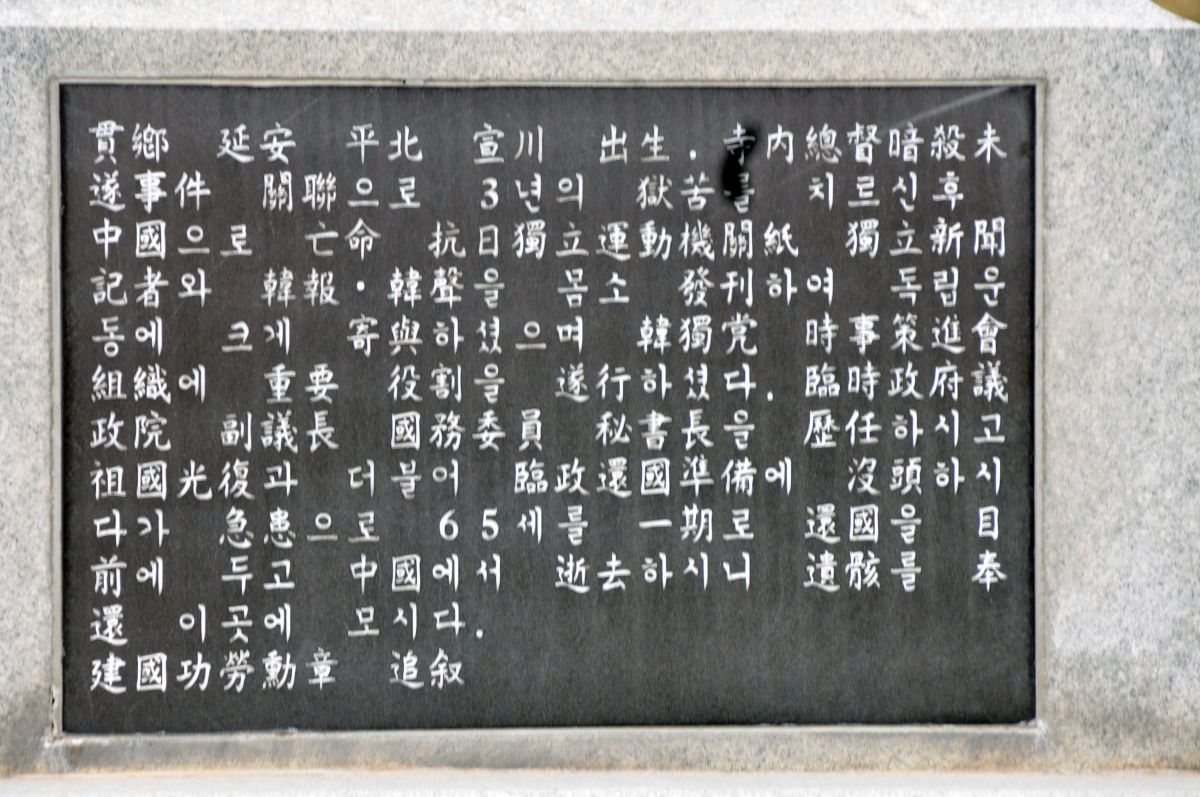 貫鄕 延安 平北 宣川 出生.寺内總督暗殺未
遂事件 關聯으로 3년의 獄苦를 치르신 後
中國으로 亡命 抗日獨立運動機關紙 獨立新聞
記者와 韓報·韓聲을 몸소 發刊하여 독립운
동에 크게 寄與하셨으며 韓獨党 時事策進會
組織에 重要役割을 遂行하셨다. 臨時政府議
政院 副議長 國務委員 秘書長을 歷任하시고
祖國光復과 더불어 臨政還國準備에 沒頭하시
다가 急患으로 65세를 一期로 還國을 目
前에 두고 中國에서 逝去하시니 遺骸를 奉
還 이곳에 모시다.
建國功勞勳章 追叙